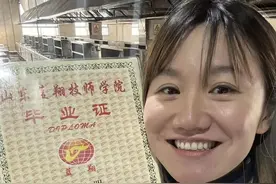 山东蓝翔技师学院
毕业证
DIPLOMA
蓝翔